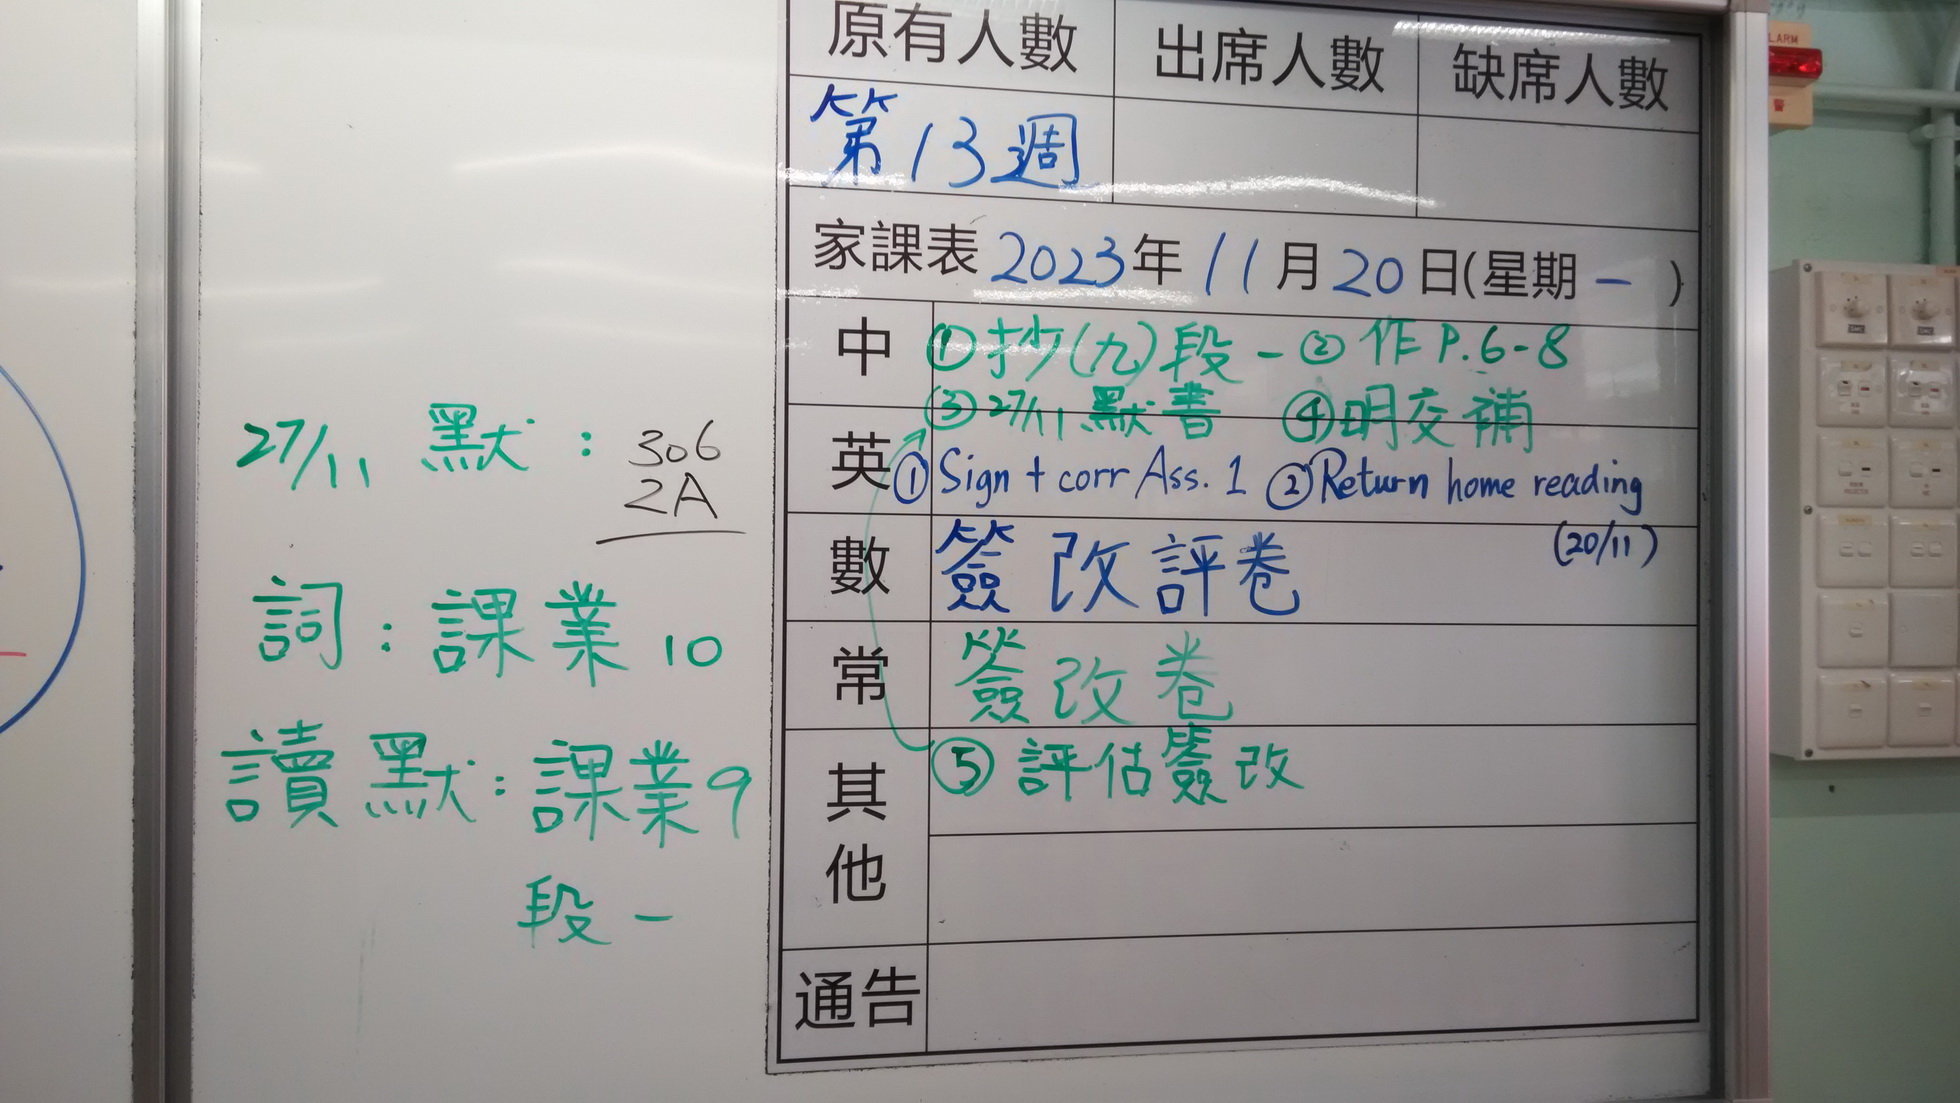 原有人數 出席人數 缺席人數
第13週
家課表 2023年 11月20日(星期一)
中 ①抄(九)段一 ②作P.6-8
③27/11默書 ④明交補
英 ①Sign + corr Ass. 1 ②Return home reading
(20/11)
數 簽改評卷
常 簽改卷
其他 ⑤評估簽改
通告
27/11 默:306
2A
詞:課業10
讀默:課業9
段一
ALARM
警